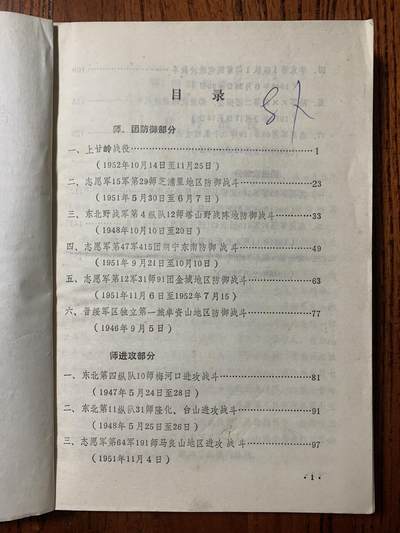 目录
师、团防御部分
一、上甘岭战役……1
（1952年10月14日至11月25日）
二、志愿军15军第29师芝浦里地区防御战斗……23
（1951年5月30日至6月7日）
三、东北野战军第4纵队12师塔山野战阵地防御战斗……33
（1948年10月10日至20日）
四、志愿军第47军415团朔宁东南防御战斗……49
（1951年9月21日至10月10日）
五、志愿军第12军31师91团金城地区防御战斗……63
（1951年11月6日至1952年7月15）
六、晋绥军区独立第一旅卓资山地区防御战斗……77
（1946年9月5日）
师进攻部分
一、东北第四纵队10师梅河口进攻战斗……81
（1947年5月24日至28日）
二、东北第11纵队31师隆化、台山进攻战斗……91
（1948年5月25日至26日）
三、志愿军第64军191师马良山地区进攻战斗……97
（1951年11月4日）
·1·